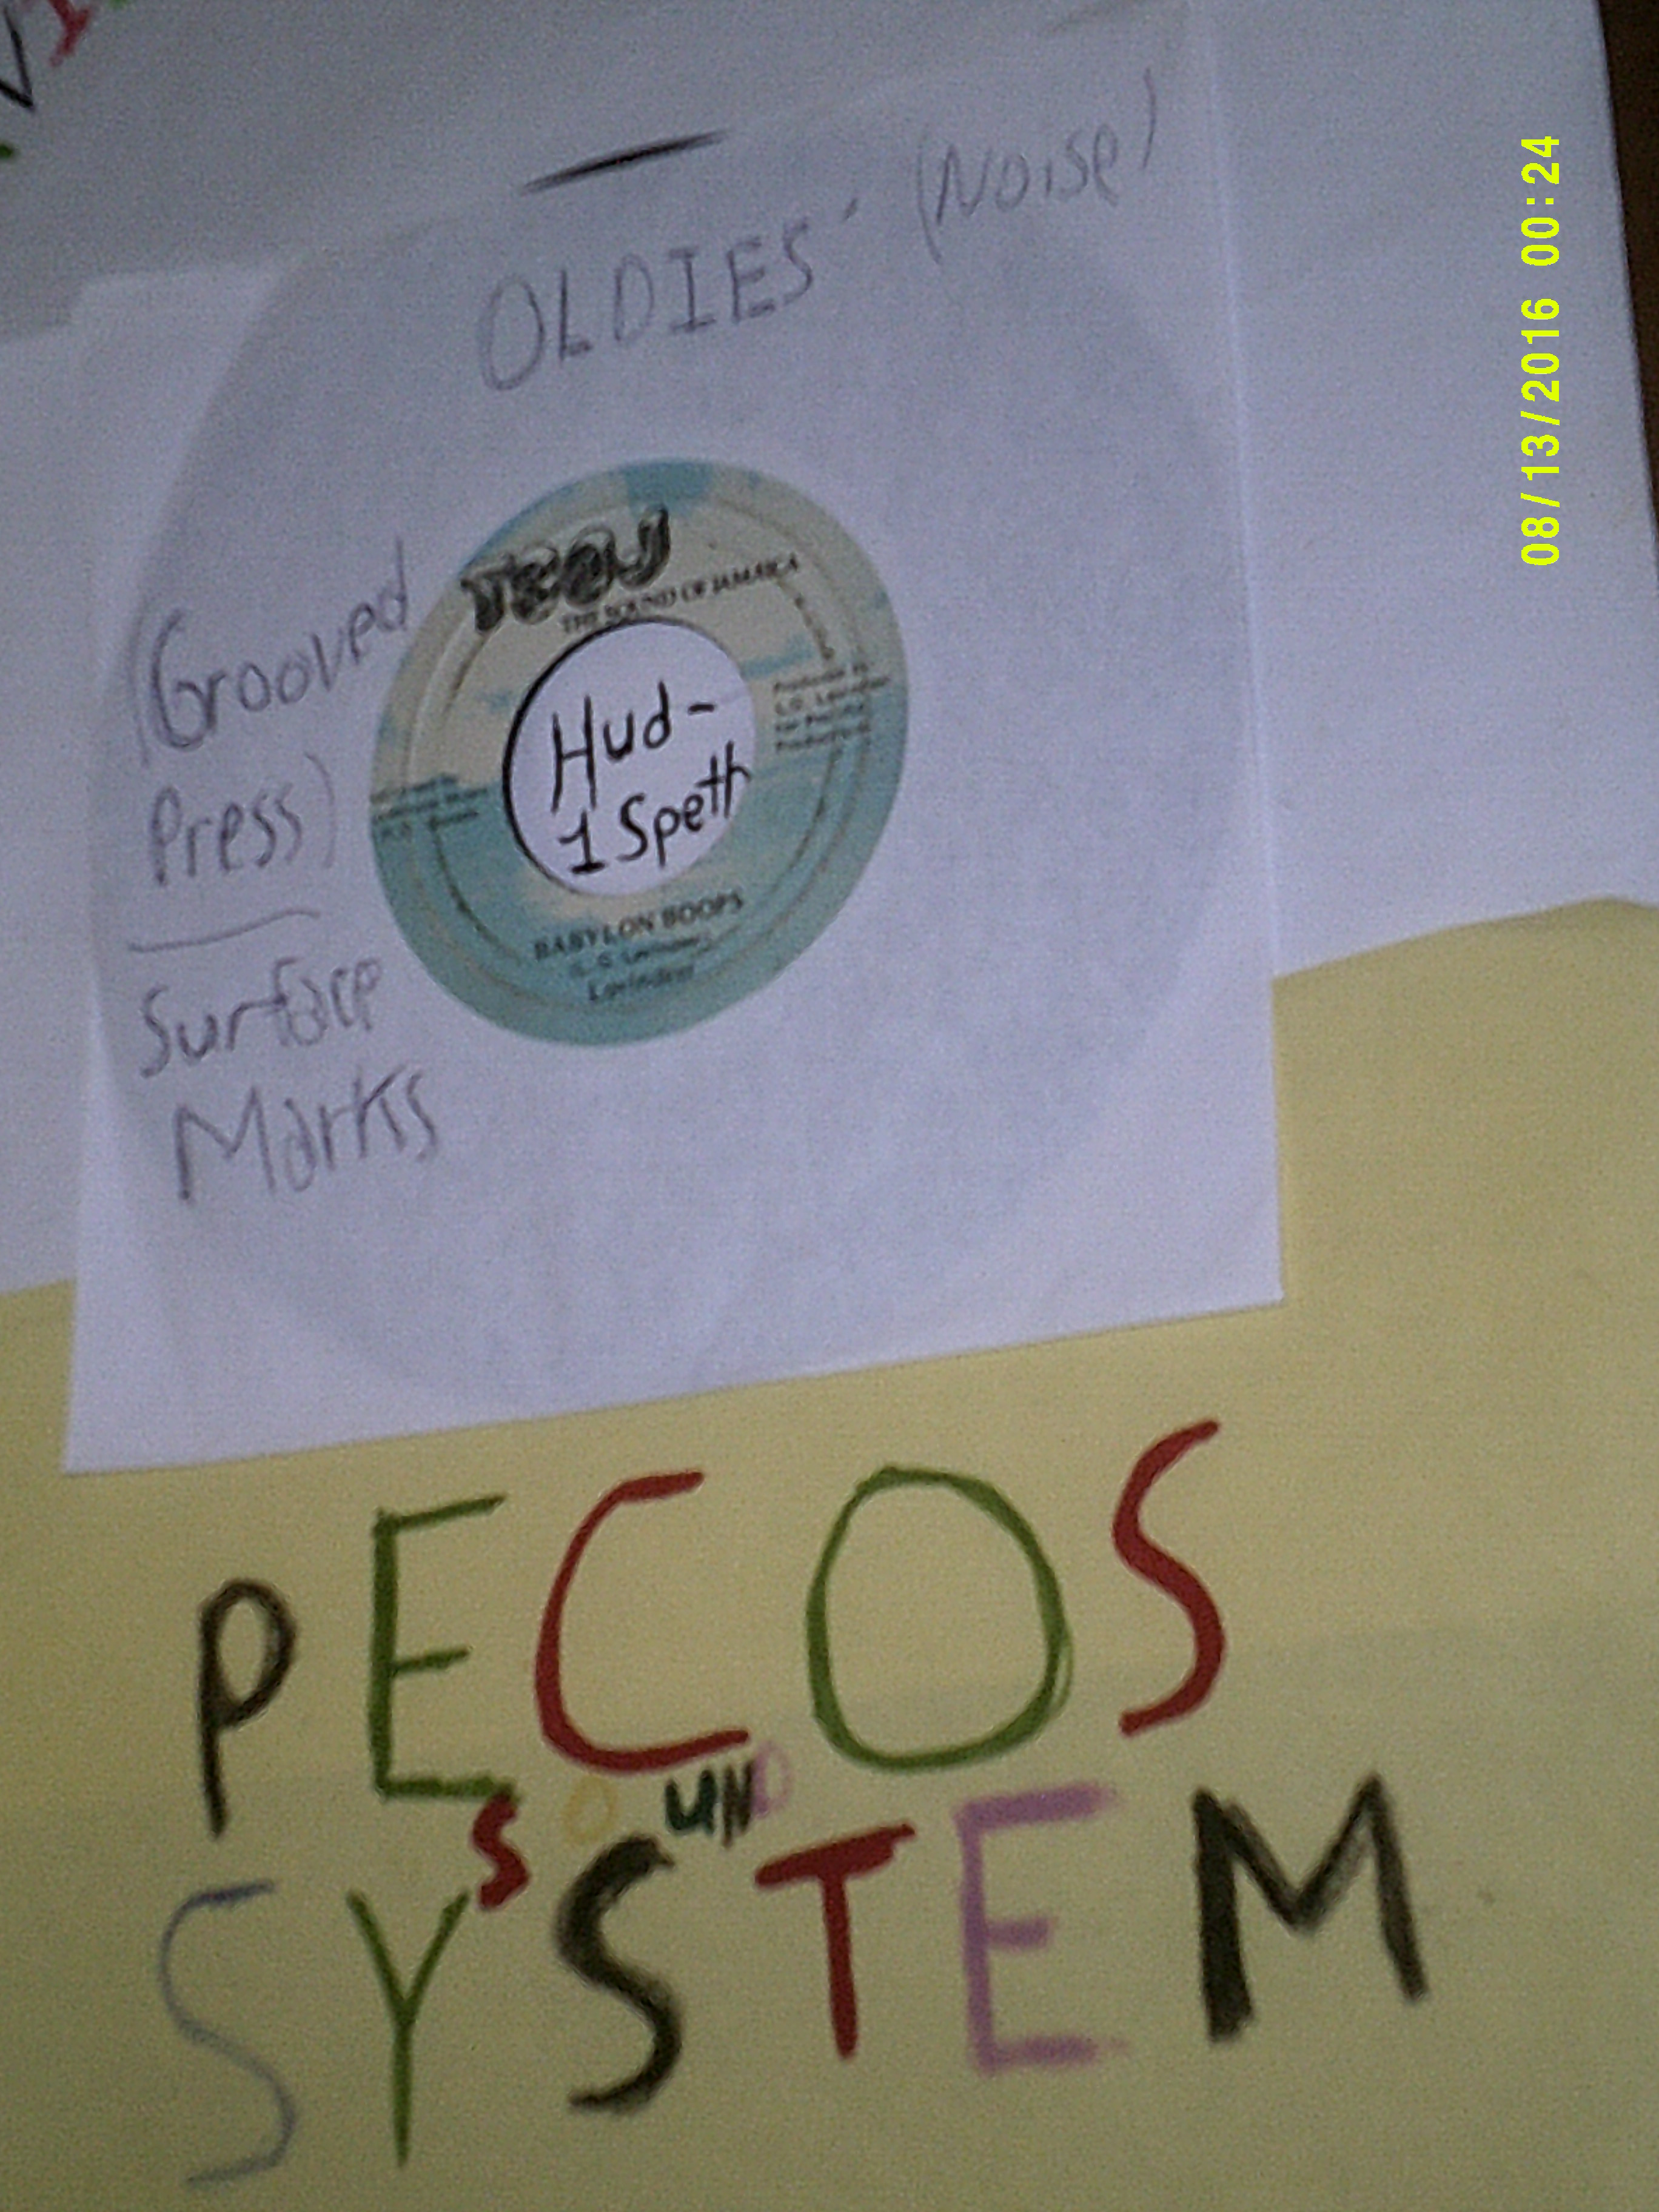 OLDIES (Noise)
(Grooved
Press)
Surface
Marks
THE SOUND OF JAMAICA
Hud-
1 Speth
BABYLON BOOPS
Lovindeer
PECOS
SOUND
SYSTEM
08/13/2016 00:24